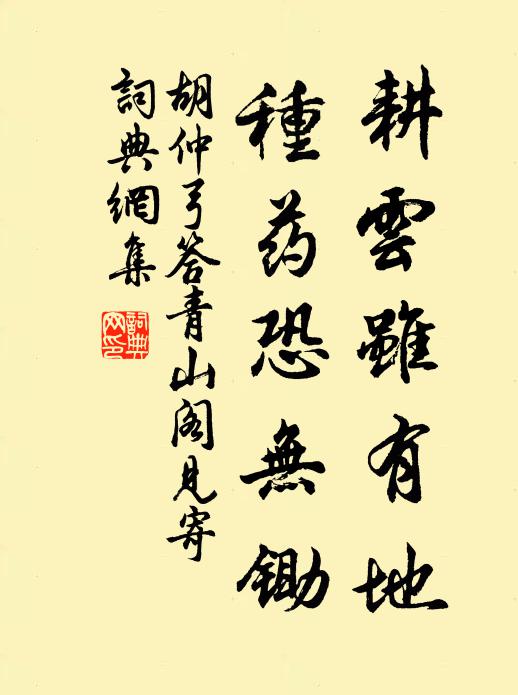 耕雲雖有地
種药恐無鋤
胡仲弓答青山阁見寄
詞典網集
詞典网印